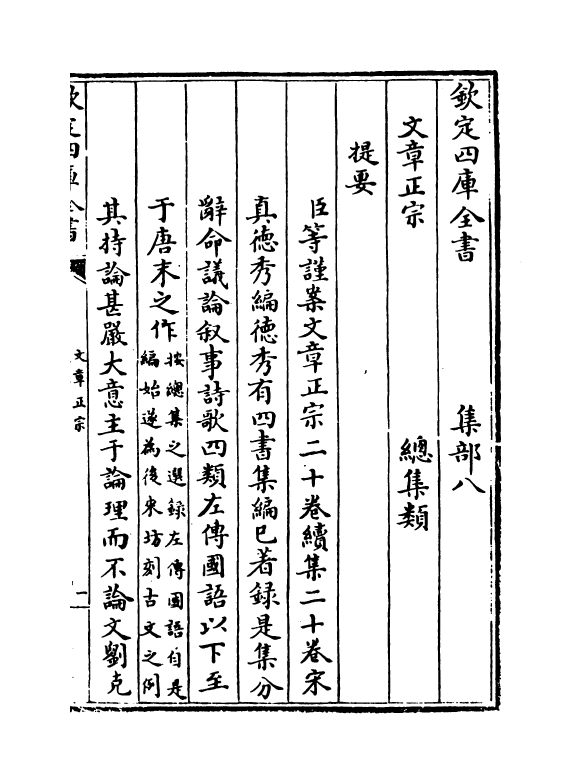 欽定四庫全書　集部八
文章正宗　總集類
提要
臣等謹案文章正宗二十卷續集二十卷宋
真德秀編德秀有四書集編已著録是集分
辭命議論叙事詩歌四類左傳國語以下至
于唐末之作按總集之選録左傳國語自是
編始遂為後來坊刻古文之例
其持論甚嚴大意主于論理而不論文劉克
欽定四庫全書
文章正宗